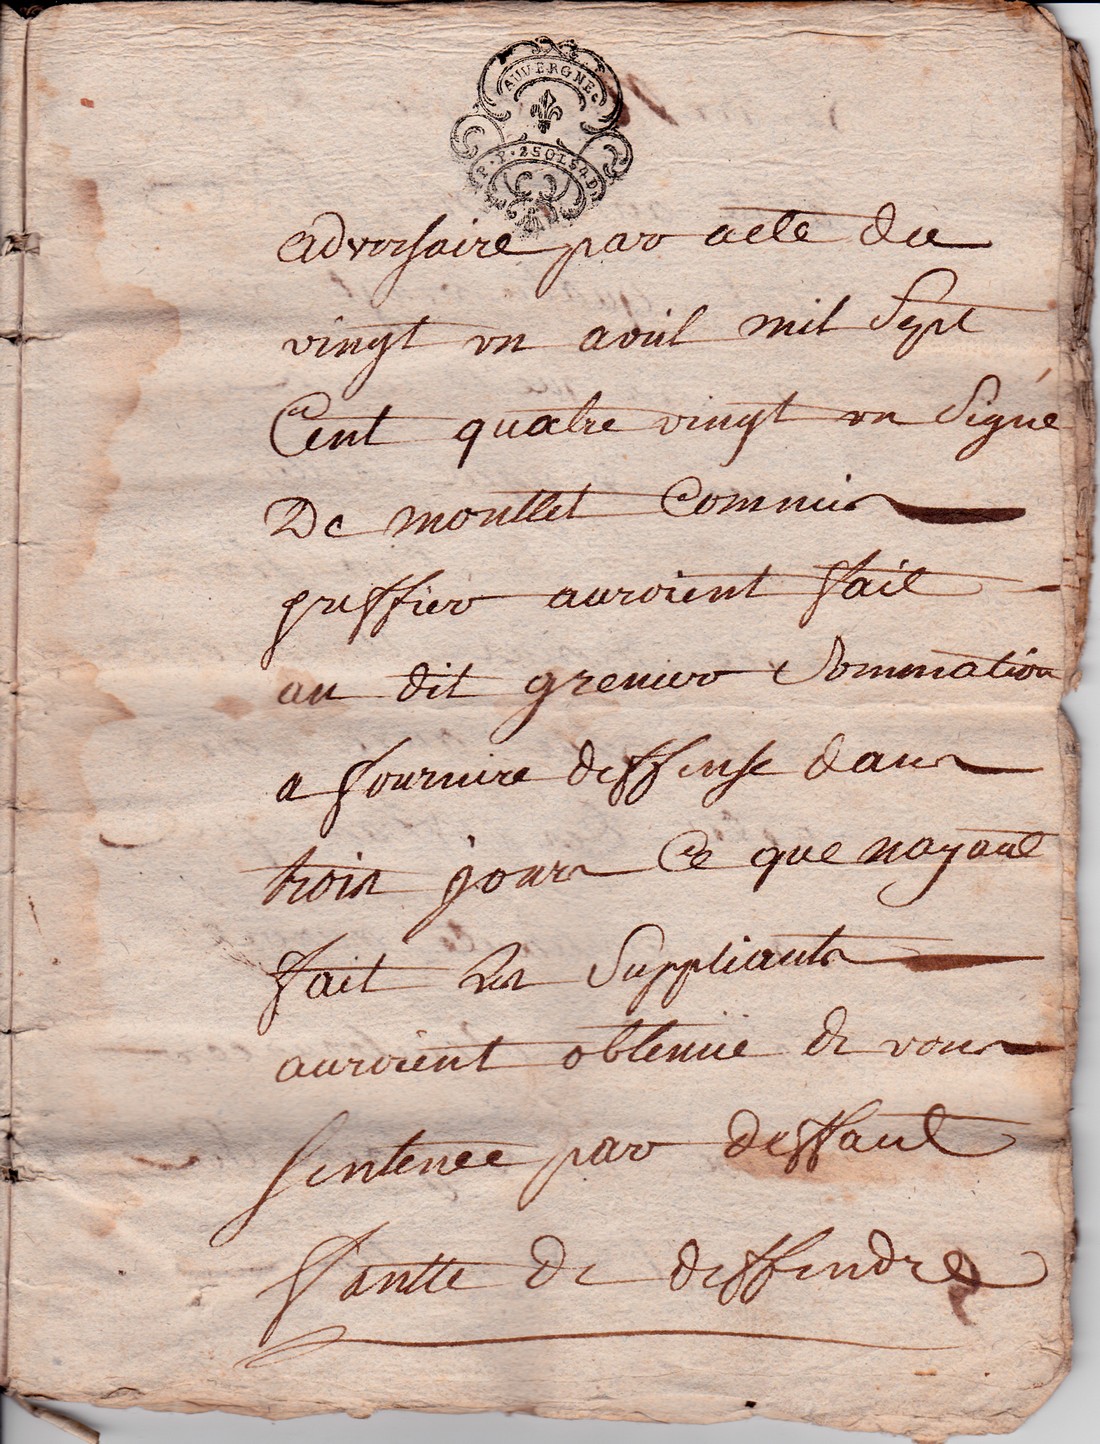 AUVERGNE
P.P. 2 SOLS 4 D
adversaire par acte du
vingt un avril mil Sept
Cent quatre vingt un Signé
De montlet Commis
greffier auroient fait
au dit grenier Sommation
a fournire deffense dans
trois jours Ce que nayant
fait les Suppliants
auroient obtenüe de vous
Sentence par deffaut
fautte de deffendre